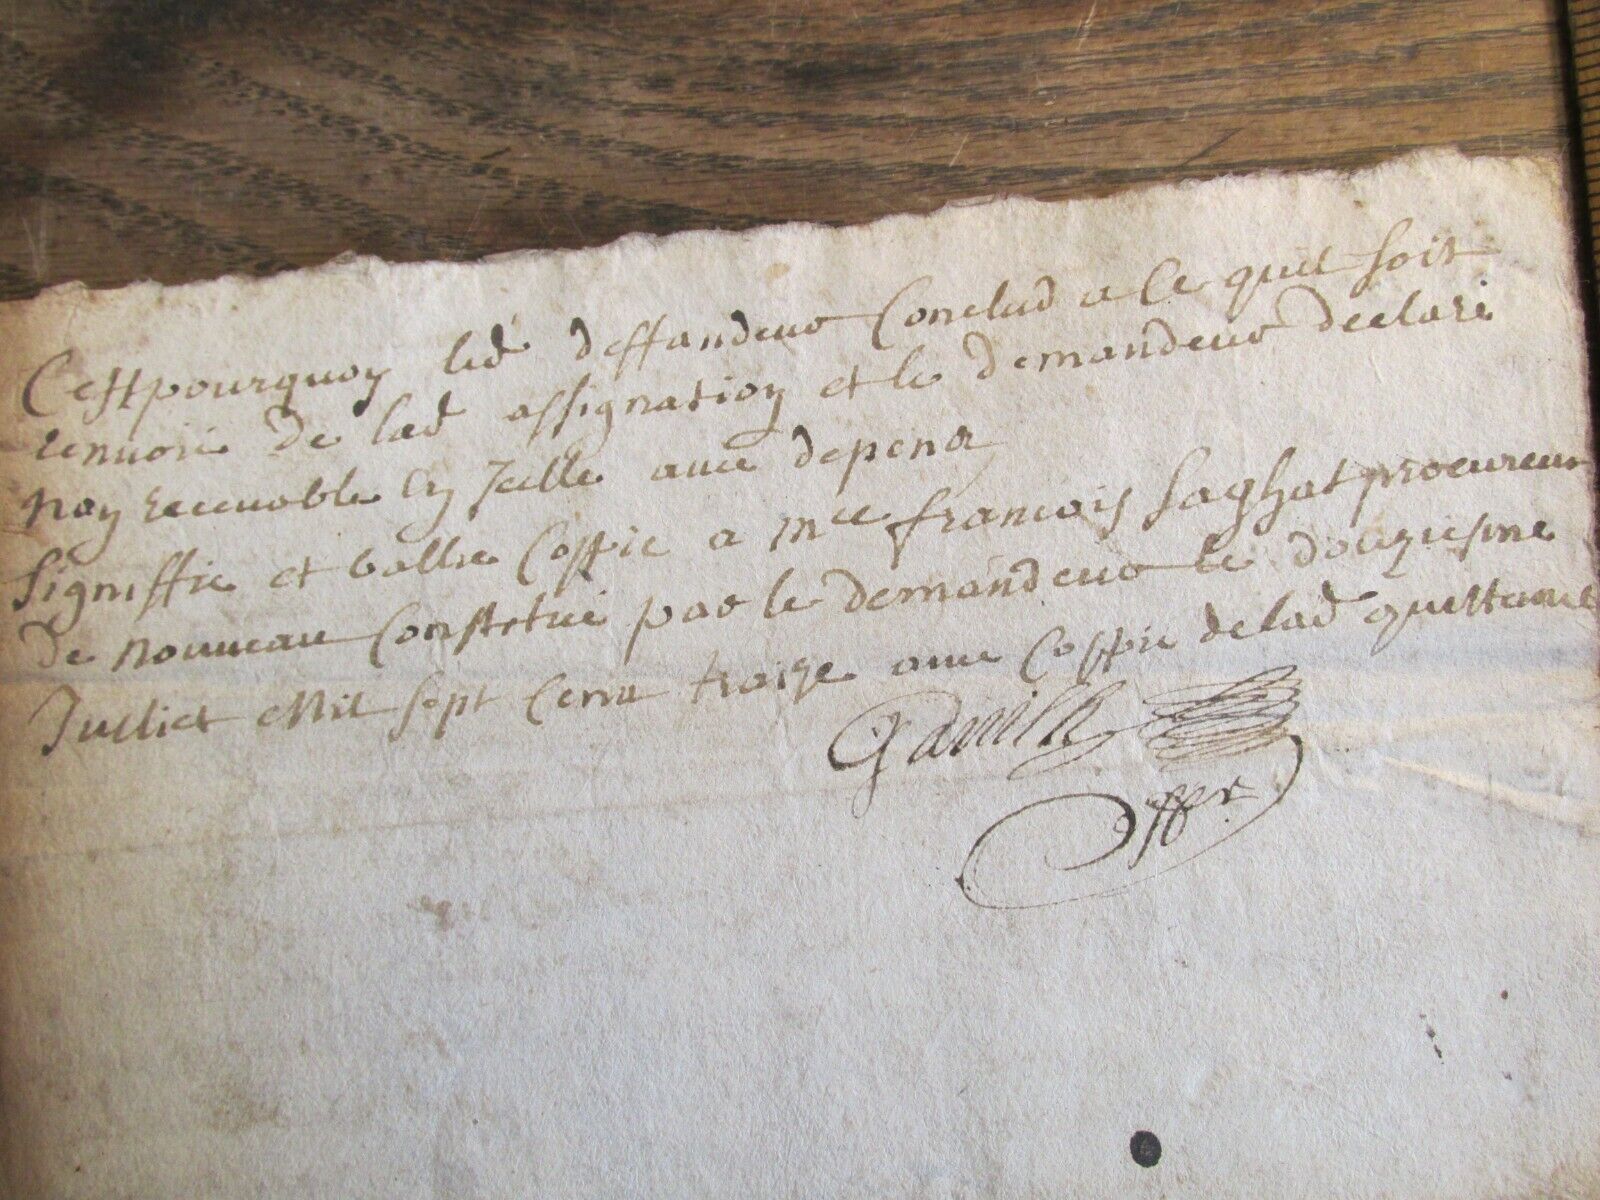 Cest pourquoy led deffandeur Conclud a Ce quil soit
renuoié de lad assignation et le demandeur declaré
non receuable En Jcelle auec depens
Signiffié et baillé Coppie a Mce francois Saghat procureur
de nouueau Constitué par le demandeur le douziesme
Juilliet Mil sept Cens traize auec Coppie de lad quittance